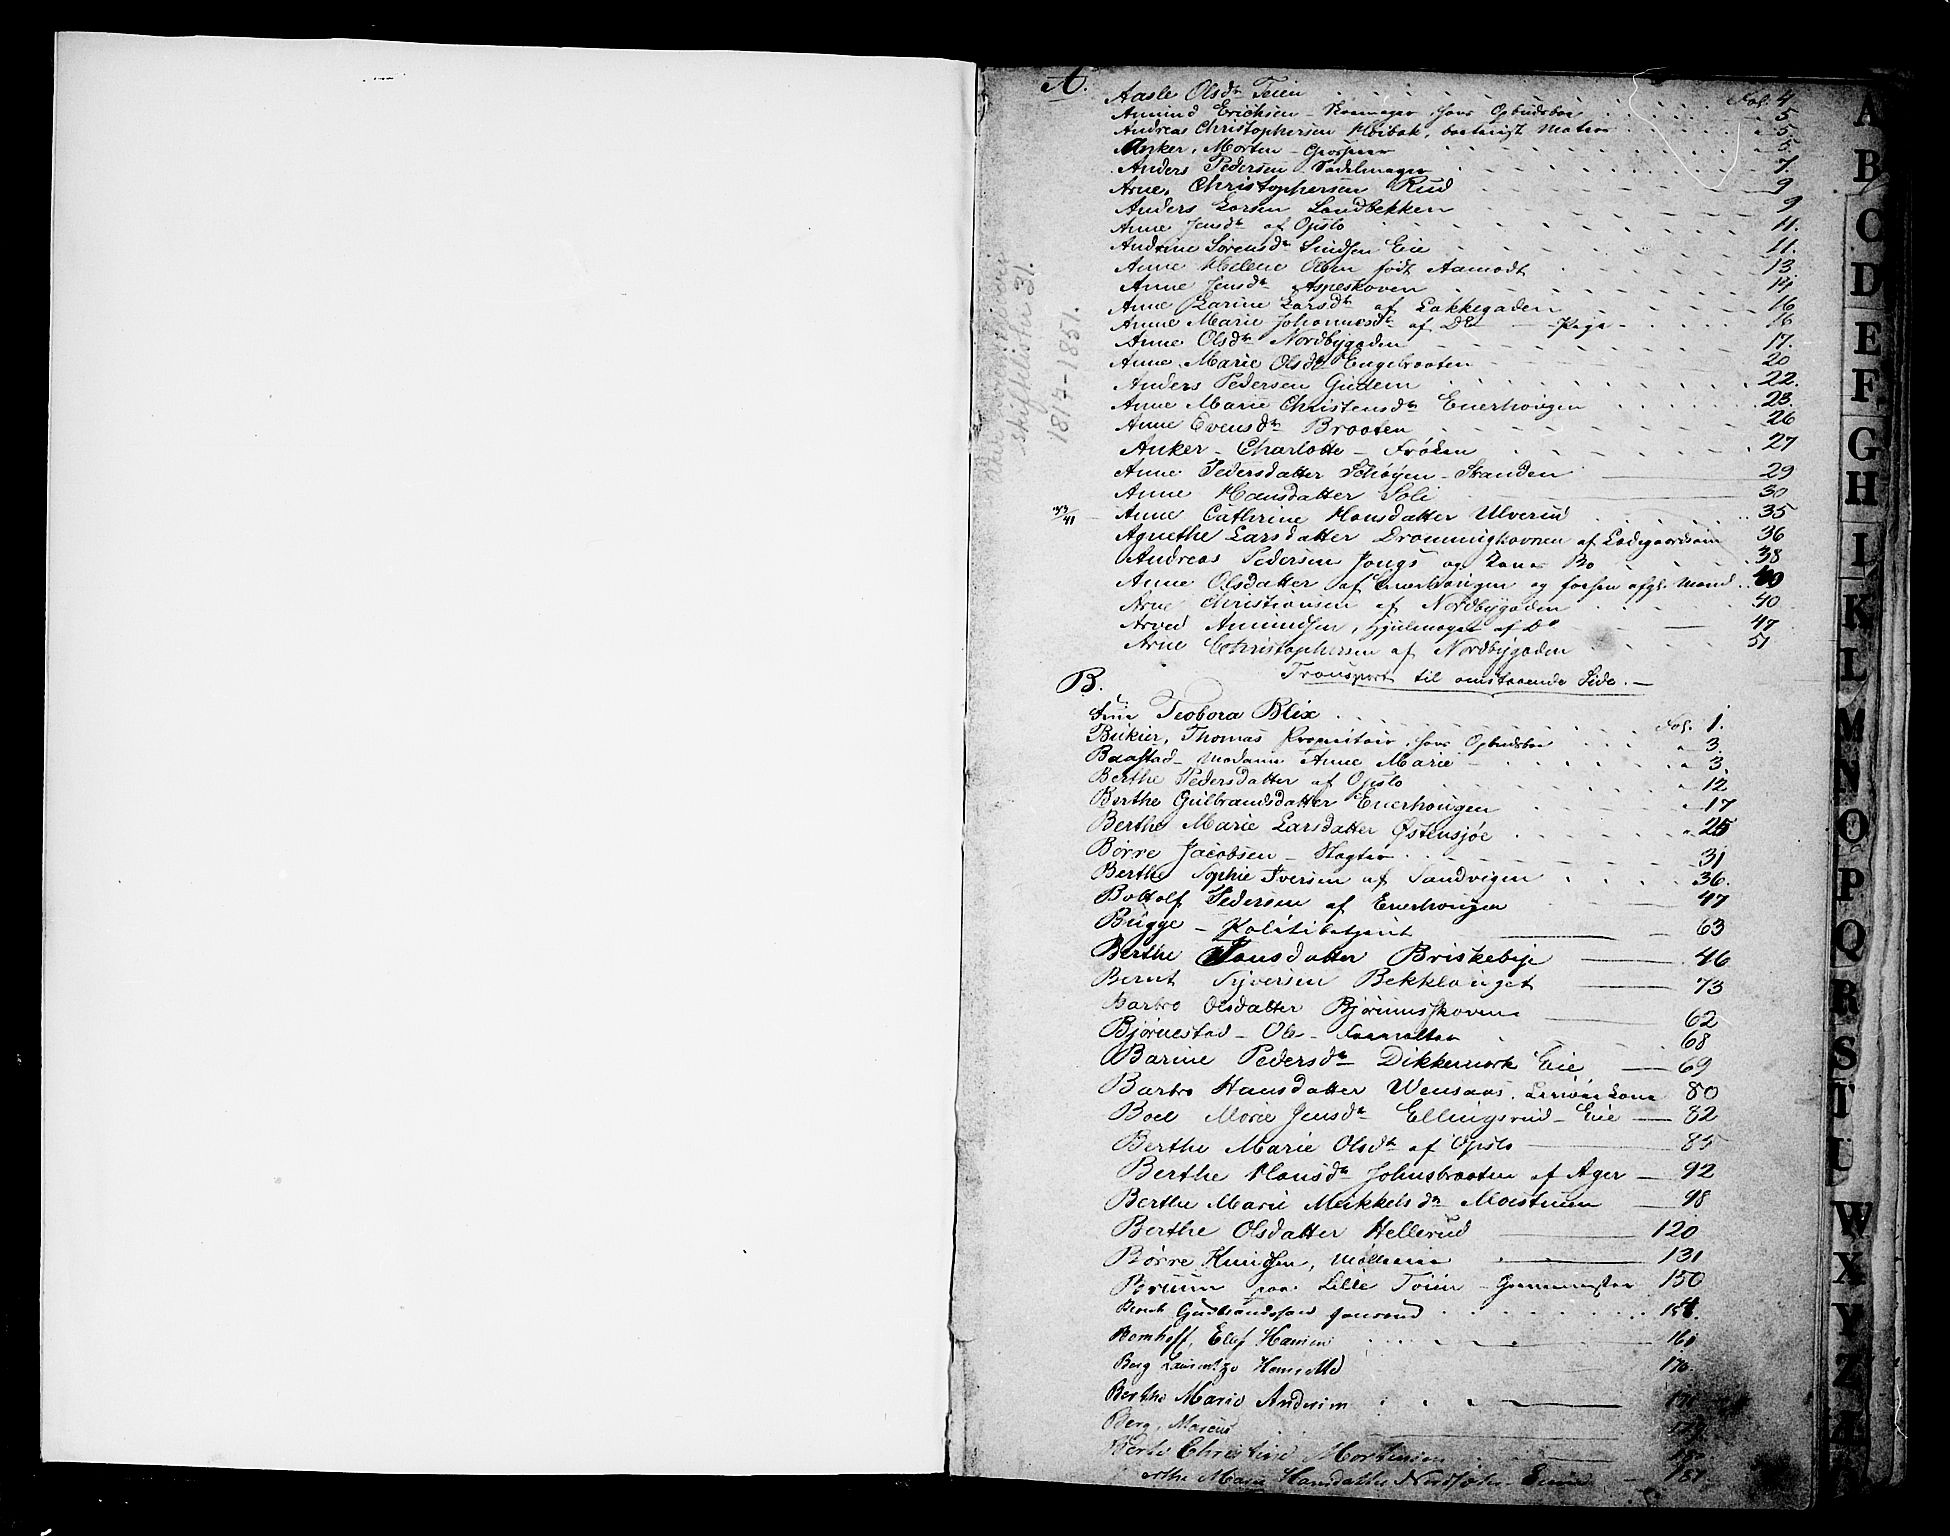 A.
Aasle Olsdtr Teien Fol. 4
Amund Erichsen - hans Opbudsboe " 5
Andreas Christophersen Høibak, " 5
Anker, Morten - " 5
Anders Pedersen Sadelmager 7
Arne Christophersen Rud 9
Anders Larsen Sandbekken 9
Anne Jensdtr af Opslo 11.
Andrine Sørensdtr Sindsen Eie 11.
Anne Helene Olsen født Aamodt 13.
Anne Jensdtr Aspeskoven 14
Anne Karine Larsdtr af Lakkegaden 16
Anne Marie Johannesdtr af Do - Pige - 16
Anne Olsdtr Nordbygaden 17.
Anne Marie Olsdtr Engebraaten 20
Anders Pedersen Gudem 22.
Anne Marie Christensdtr Enerhougen 23.
Anne Evensdtr Braaten 26
Anker - Charlotte - Frøken 27
Anne Pedersdatter Schøyen - Stranden 29
Anne Hansdatter Soli 30
Anne Cathrine Hansdatter Ulverud 35
Agnethe Larsdatter Dronninghavnen af Ladegaardsøen 36
Andreas Pedersen Jongs og Kones Bo 38
Anne Olsdatter af Enerhougen og forhen afg. Mand 40
Arne Christiansen af Nordbygaden 40
Arved Amundsen, Hjulmager af Do 47
Arne Christophersen af Nordbygaden 51
Transport til omstaaende Side. -
B.
Teodora Blix Fol. 1.
Bukier, Thomas Proprietair, hans Opbudsboe " 3.
Baastad - Madame Anne Marie - " 3
Berthe Pedersdatter af Opslo " 12
Berthe Gulbrandsdatter Enerhougen " 17
Berthe Marie Larsdatter Østensjøe " 25
Børre Jacobsen - Slagter 31
Berthe Sophie Iversen af Sandvigen 36.
Bottolf Pedersen af Enerhougen 47
Bugge - Politibetjent 63
Berthe Hansdatter Briskebye 46
Bernt Syversen Bekklauget 73
Barbro Olsdatter Bjørumsskoven 62
Bjørnestad - Ole - 68
Barine Pedersdtr Dikkemark Eie 69
Barbro Hansdatter Wensaas, 80
Boel Marie Jensdtr Ellingsrud - Eie 82
Berthe Marie Olsdtr af Opslo 85
Berthe Hansdtr Johnsbraaten af Ager 92
Berthe Marie Mikkelsdtr Moestuen 98
Berthe Olsdatter Hellerud 120
Børre Knudsen, 131
Bruun paa Lille Tøien - 150
Gudbrandssen
Bomhoff, Elef Hansen 161
Berg
Berthe Marie Andersen 171
Berg, Marcus
Christine Mortensen
Marie Hansdatter 181
Skifteliste 31.
1814-1851.
A
B
C
D
E
F
G
H
I
K
L
M
N
O
P
Q
R
S
T
U
W
X
Y
Z